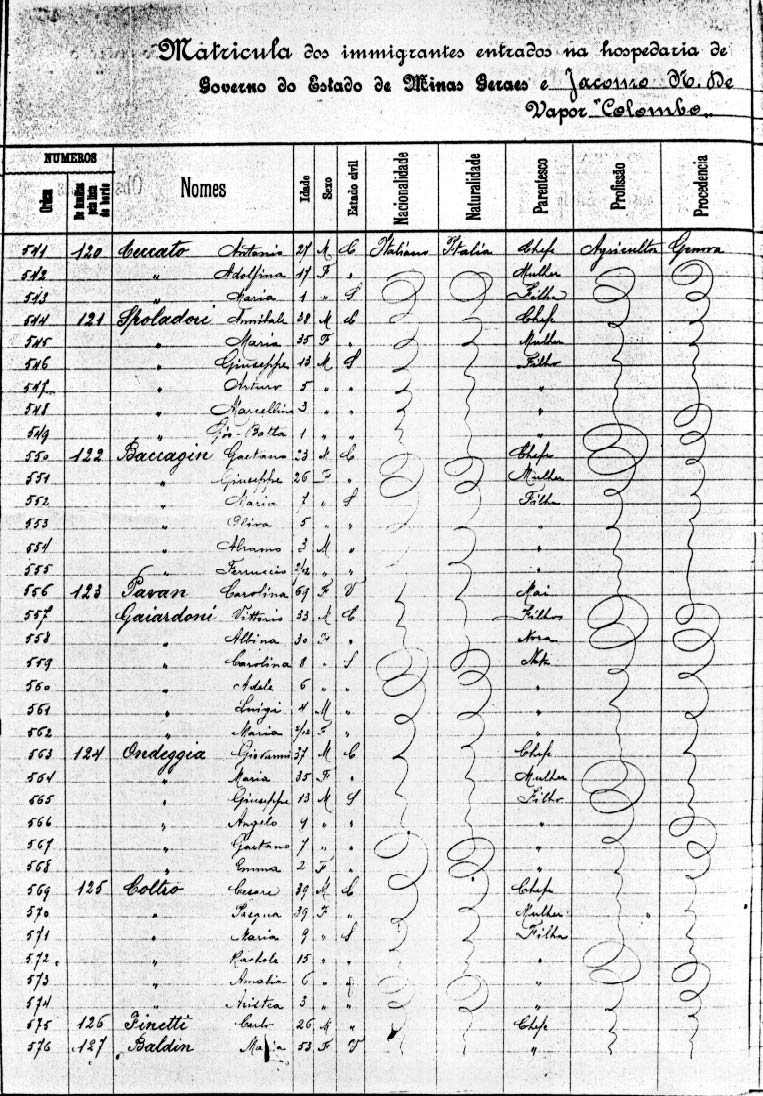 Matricula dos immigrantes entrados na hospedaria de
Governo do Estado de Minas Geraes e Jacomo N. De
Vapor "Colombo"
NUMEROS
Ordem De familia pela lista de bordo Nomes Idade Sexo Estado civil Nacionalidade Naturalidade Parentesco Profissão Procedencia
541 120 Ceccato Antonio 27 M C Italiano Italia Chefe Agricultor Genova
542 " Adolfina 17 F " Mulher
543 " Maria 1 " S Filha
544 121 Spoladori Annibale 38 M C Chefe
545 " Maria 35 F " Mulher
546 " Giuseppe 13 M S Filho
547 " Arturo 5 " " "
548 " Marcellino 3 " " "
549 " Gio-Batta 1 " " "
550 122 Baccagin Gaetano 23 M C Chefe
551 " Giuseppe 26 F " Mulher
552 " Maria 7 " S Filha
553 " Oliva 5 " " "
554 " Abramo 3 M " "
555 " Ferruccio 2/12 " " "
556 123 Pavan Carolina 69 F V Mai
557 Gaiardoni Vittorio 33 M C Filhos
558 " Albina 30 F " Nora
559 " Carolina 8 " S Neta
560 " Adele 6 " " "
561 " Luigi 4 M " "
562 " Maria 2/12 F " "
563 124 Ondeggia Giovanni 37 M C Chefe
564 " Maria 35 F " Mulher
565 " Giuseppe 13 M S Filho
566 " Angelo 9 " " "
567 " Gaetano 7 " " "
568 " Emma 2 F " "
569 125 Coltro Cesare 39 M C Chefe
570 " Pasqua 39 F " Mulher
571 " Maria 9 " S Filha
572 " Rachele 15 " " "
573 " Amalia 6 " " "
574 " Aristea 3 " " "
575 126 Finetti Carlo 26 M " Chefe
576 127 Baldin Maria 53 F V "